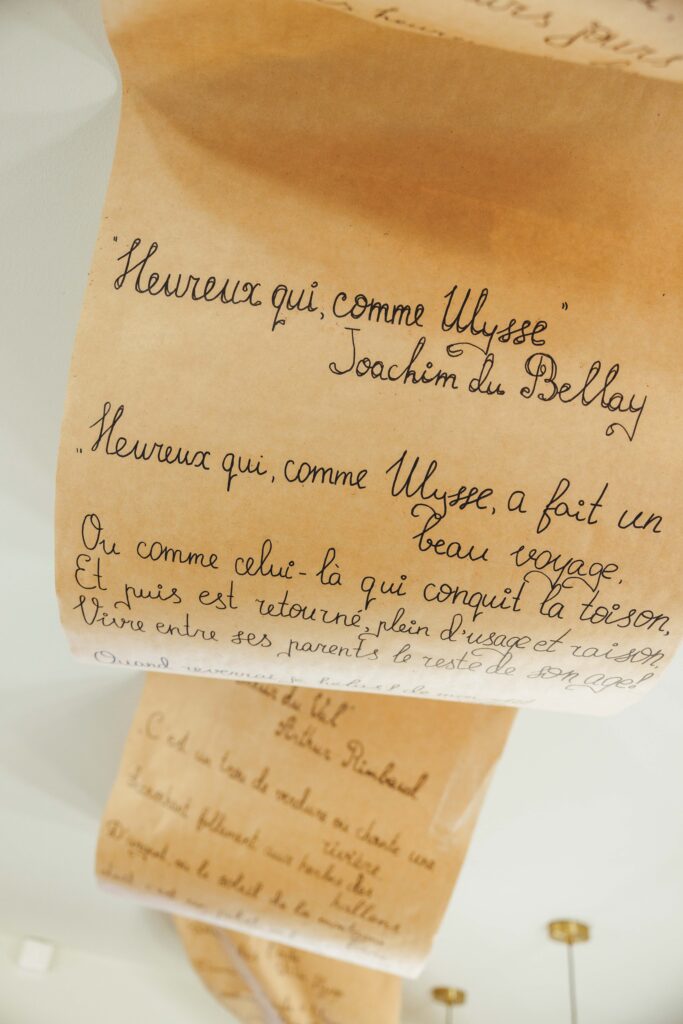 jours
"Heureux qui, comme Ulysse"
Joachim du Bellay
„Heureux qui, comme Ulysse, a fait un
beau voyage,
Ou comme celui-là qui conquit la toison,
Et puis est retourné, plein d'usage et raison,
Vivre entre ses parents le reste de son age!
Quand
du Val"
Arthur Rimbaud
C'est un trou de verdure ou chante une
rivière
follement aux herbes des
haillons
D'argent ou le soleil de la montagne